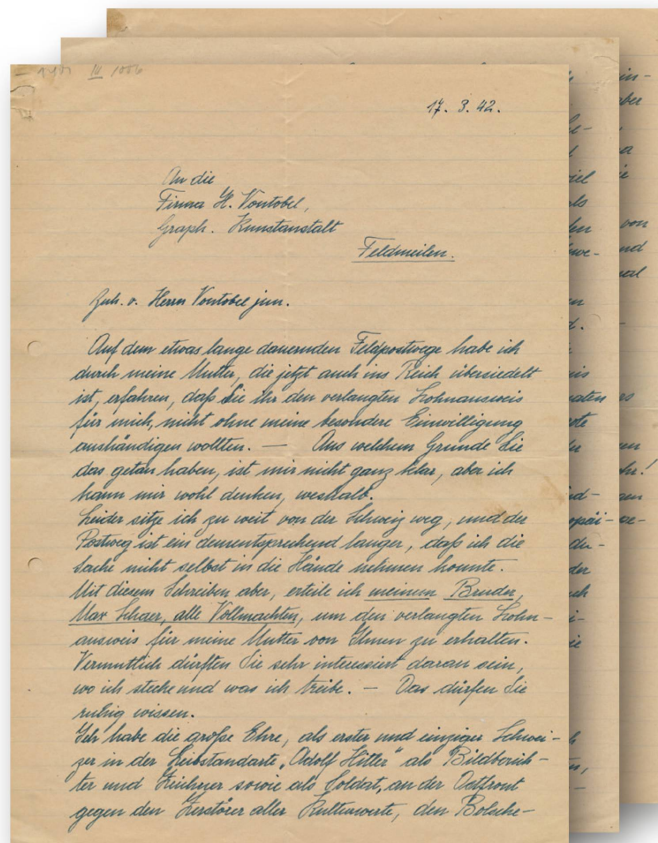 17. 3. 42.
An die
Firma H. Vontobel,
Graph. Kunstanstalt
Feldmeilen.
Zuh. v. Herrn Vontobel jun.
Auf dem etwas lange dauernden Feldpostwege habe ich
durch meine Mutter, die jetzt auch ins Reich übersiedelt
ist, erfahren, daß Sie ihr den verlangten Lohnausweis
für mich, nicht ohne meine besondere Einwilligung
aushändigen wollten. — Aus welchem Grunde Sie
das getan haben, ist mir nicht ganz klar, aber ich
kann mir wohl denken, weshalb.
Leider sitze ich zu weit von der Schweiz weg, und der
Postweg ist ein dementsprechend langer, daß ich die
Sache nicht selbst in die Hände nehmen konnte.
Mit diesem Schreiben aber, erteile ich meinem Bruder,
Max Schaer, alle Vollmachten, um den verlangten Lohn-
ausweis für meine Mutter von Ihnen zu erhalten.
Vermutlich dürften Sie sehr interessiert daran sein,
wo ich stecke und was ich treibe. — Das dürfen Sie
ruhig wissen.
Ich habe die große Ehre, als erster und einziger Schwei-
zer in der Leibstandarte „Adolf Hitler" als Bildberich-
ter und Zeichner sowie als Soldat, an der Ostfront
gegen den Zerstörer aller Kulturwerte, den Bolsche-